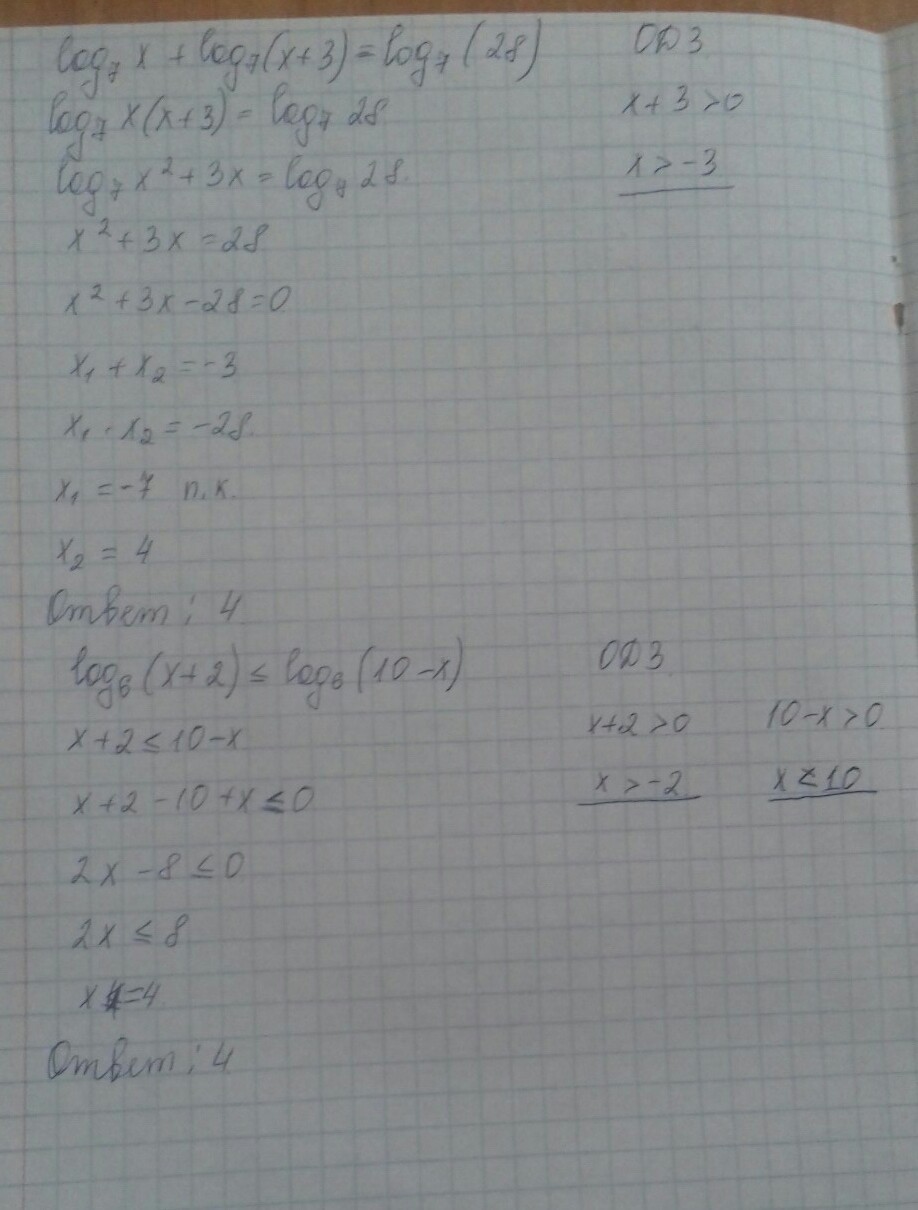 log₇ x + log₇(x+3) = log₇(28) ОДЗ
log₇ x(x+3) = log₇ 28 x+3>0
log₇ x²+3x = log₇ 28. x>-3
x²+3x=28
x²+3x-28=0
x₁+x₂=-3
x₁·x₂=-28.
x₁=-7 п.к.
x₂=4
Ответ: 4
log₆(x+2)≤log₆(10-x) ОДЗ
x+2≤10-x x+2>0 10-x>0
x+2-10+x≤0 x>-2 x<10
2x-8≤0
2x≤8
x=4
Ответ: 4